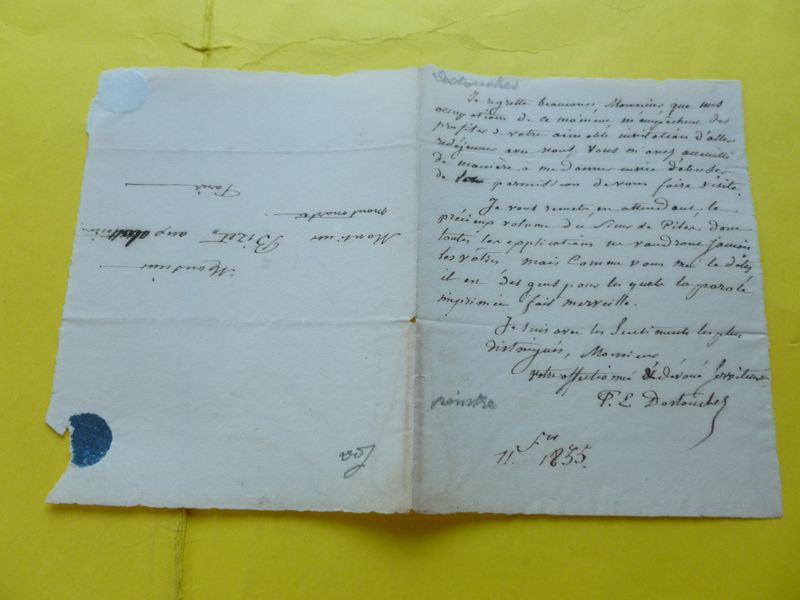 Destouches
Je regrette beaucoup, Monsieur que mes
occupations de ce moment m'empêchent de
profiter de votre aimable invitation d'aller
redéjeuner avec vous. Vous m'avez accueilli
de manière a me donner envie d'abuser
de la permission de vous faire visite.
Je vous remets, en attendant, le
précieux volume du Sieur de Piles dont
toutes les explications ne vaudront jamais
les votres mais comme vous me le dites
il en des gens pour les quels la parole
imprimée fait merveille.
Je suis avec les sentiments les plus
distingués, Monsieur
votre affectionné & dévoué serviteur
P. L Destouches
peintre
11. fer 1835.
Monsieur
Monsieur Bizet, aux abattoirs
montmartre
Paris